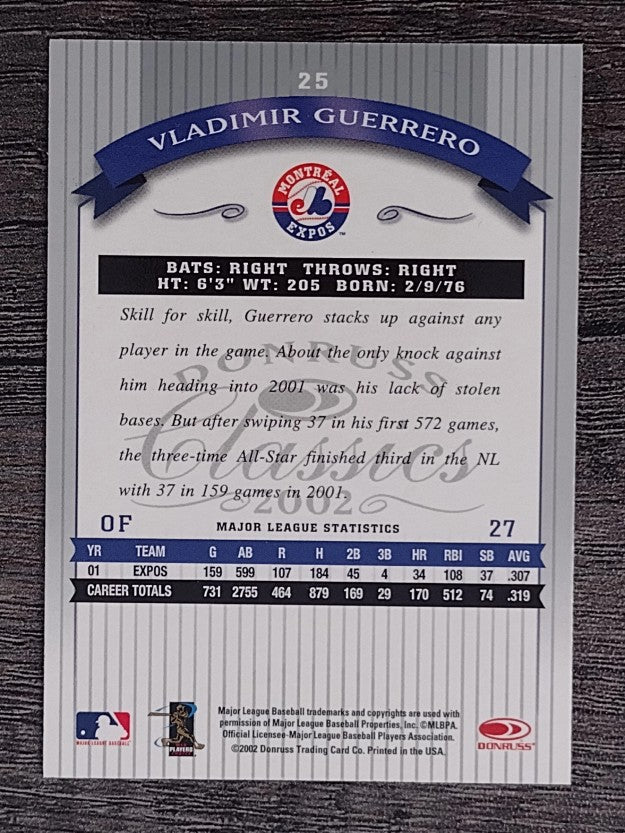 25
VLADIMIR GUERRERO
MONTRÉAL
eb
EXPOS
TM
BATS: RIGHT THROWS: RIGHT
HT: 6'3" WT: 205 BORN: 2/9/76
Skill for skill, Guerrero stacks up against any
player in the game. About the only knock against
him heading into 2001 was his lack of stolen
bases. But after swiping 37 in his first 572 games,
the three-time All-Star finished third in the NL
with 37 in 159 games in 2001.
DONRUSS
Classics
2002
OF MAJOR LEAGUE STATISTICS 27
YR TEAM G AB R H 2B 3B HR RBI SB AVG
01 EXPOS 159 599 107 184 45 4 34 108 37 .307
CAREER TOTALS 731 2755 464 879 169 29 170 512 74 .319
MAJOR LEAGUE BASEBALL
PLAYERS
Major League Baseball trademarks and copyrights are used with
permission of Major League Baseball Properties, Inc. ©MLBPA.
Official Licensee-Major League Baseball Players Association.
©2002 Donruss Trading Card Co. Printed in the USA.
DONRUSS